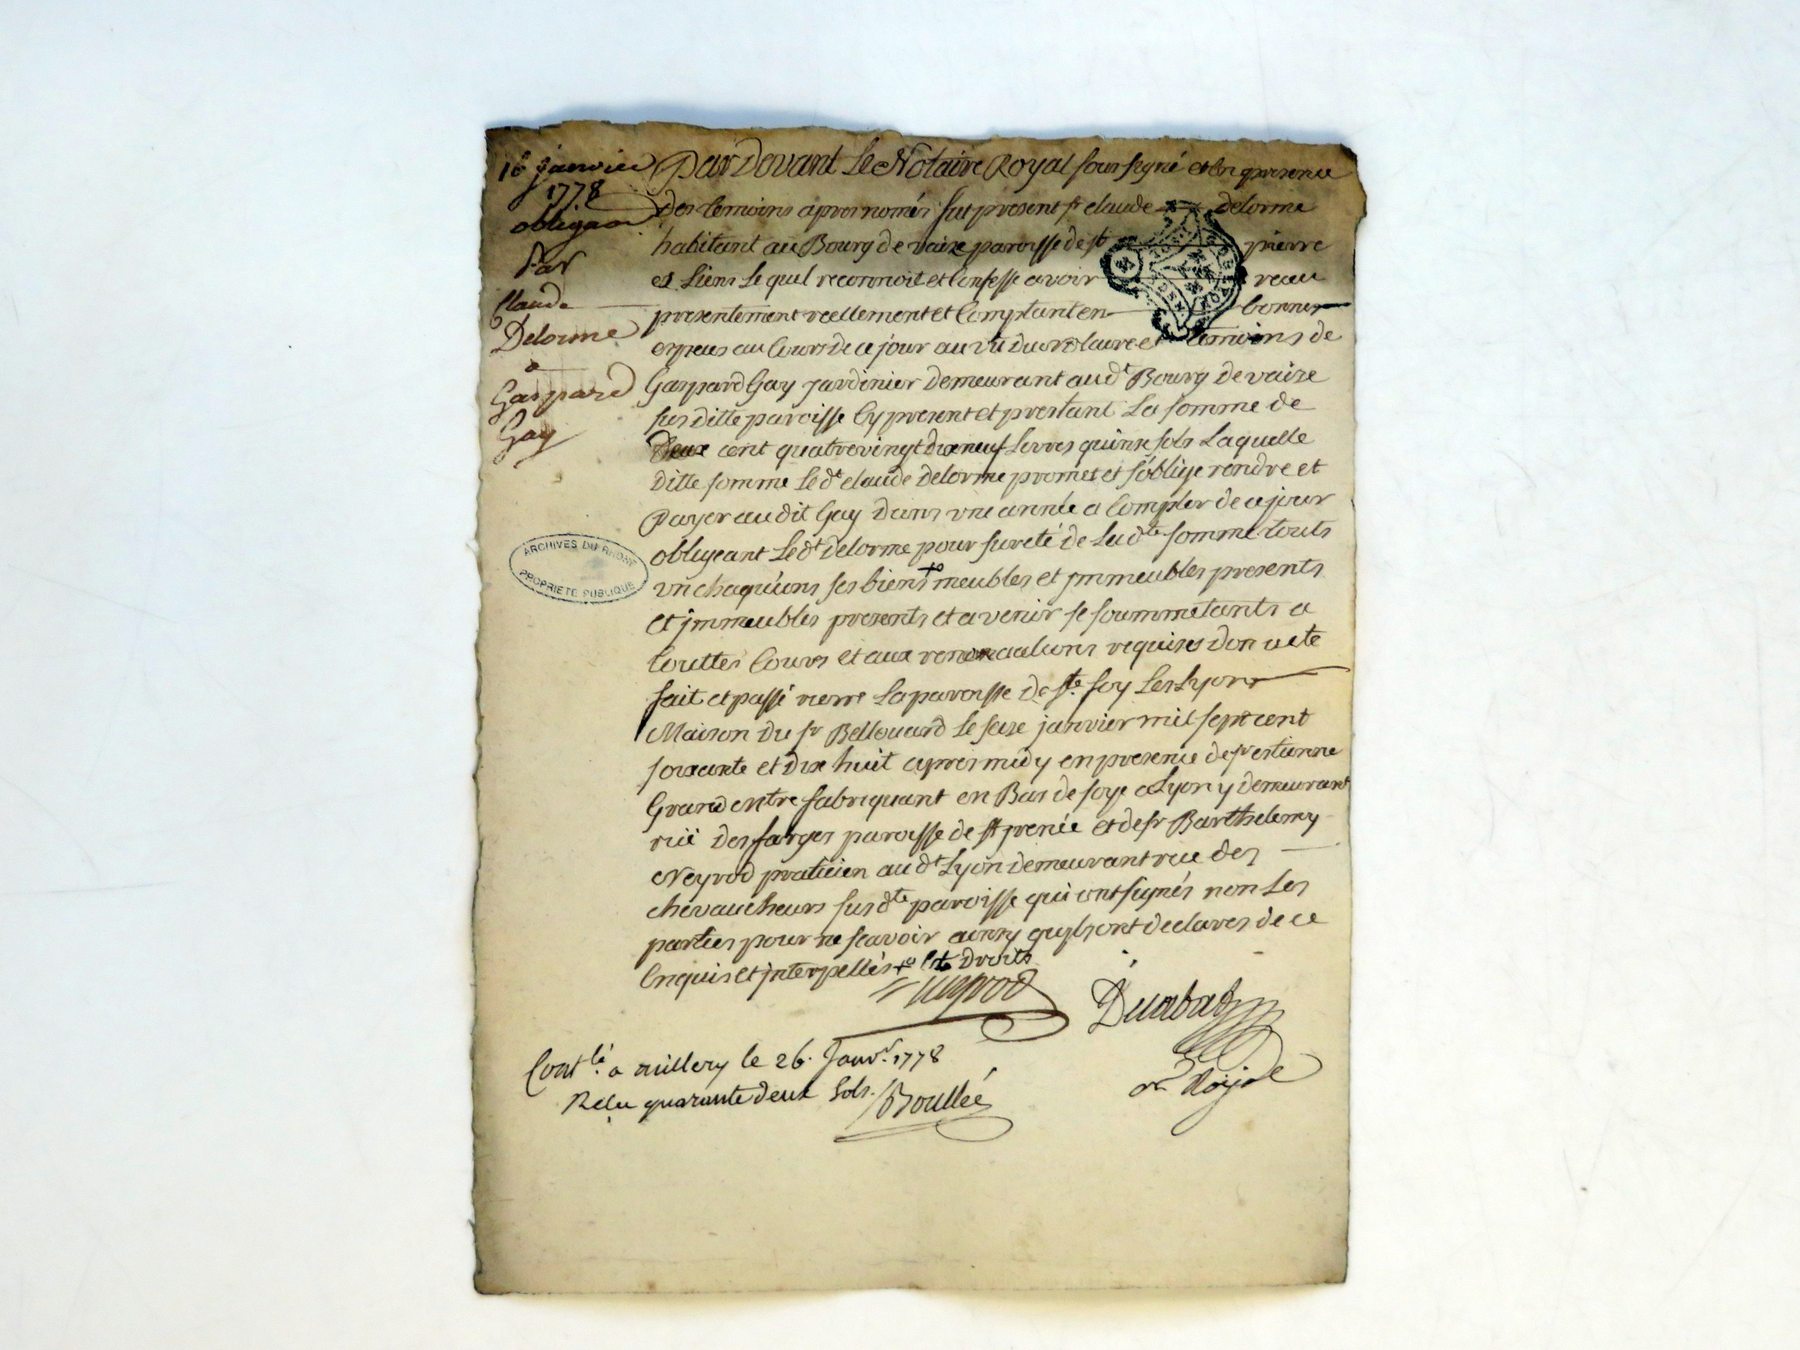 16 janvier
1778
obligaon
Par
Claude
Delorme
a
Gaspard
Gay
Pardevant Le Notaire Royal soussigné et En presence
Des temoins apres només fut present sr claude delorme
habitant au Bourg de vaize paroisse de st pierre
es Liens Lequel reconnoit et Confesse avoir recu
presentement reellement et Comptant en bonnes
especes au Cours de ce jour au vû du notaire et temoins de
Gaspard Gay jardinier Demeurant audt Bourg de vaize
susditte paroisse Cy present et prestant La somme de
Deux cent quatrevingt dixneuf Livres quinse sols Laquelle
ditte somme Ledt claude Delorme promet et s'oblige rendre et
Payer audit Gay dans une année a Compter de ce jour
obligeant Ledt Delorme pour sureté de Ladte somme touts
un chaquuns ses biens +o meubles et jmmeubles presents
et jmmeubles presents et avenir se soummetants a
touttes Cours et aux renonciations requises Don acte
fait et passé rierre La paroisse de Ste foy Les Lyon
Maison du sr Bellouard Le seze janvier mil sept cent
soixante et dix huit apres midy en presence de sr estienne
Grand fabriquant en Bas de soye a Lyon y demeurant
ruë Des farges paroisse de st jrenée et de sr Barthelemy
Neyrod praticien audt Lyon demeurant rue des
chevaucheurs susdte paroisse qui ont signés non Les
parties pour ne scavoir ainsy quyls ont declarés de ce
Enquis et jnterpellés +o Droits
Neyrod
Durabat
nre Royal
Contlé a millery le 26. Janvr. 1778
Recu quarante deux Sols. Boullée
ARCHIVES DU RHONE
PROPRIETE PUBLIQUE